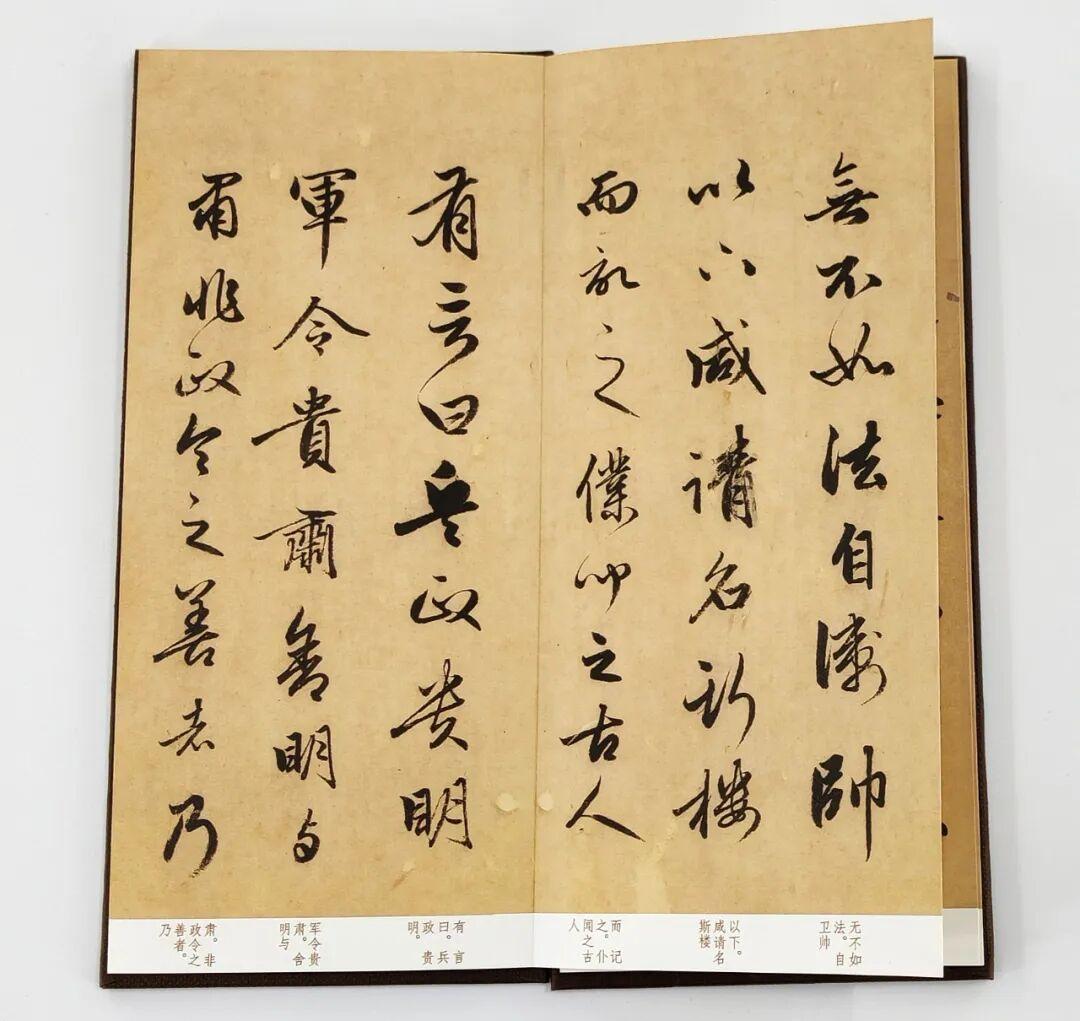 無不如法自衛帥
以下咸請名斯樓
而記之僕聞之古人
有言曰兵政貴明
軍令貴肅舍明与
肅非政令之善者乃
无不如
法。自
卫帅
以下。
咸请名
斯楼
而记
之。仆
闻之古
人
有言
曰。兵
政贵
明。
军令贵
肃。舍
明与
肃。非
政令之
善者。
乃